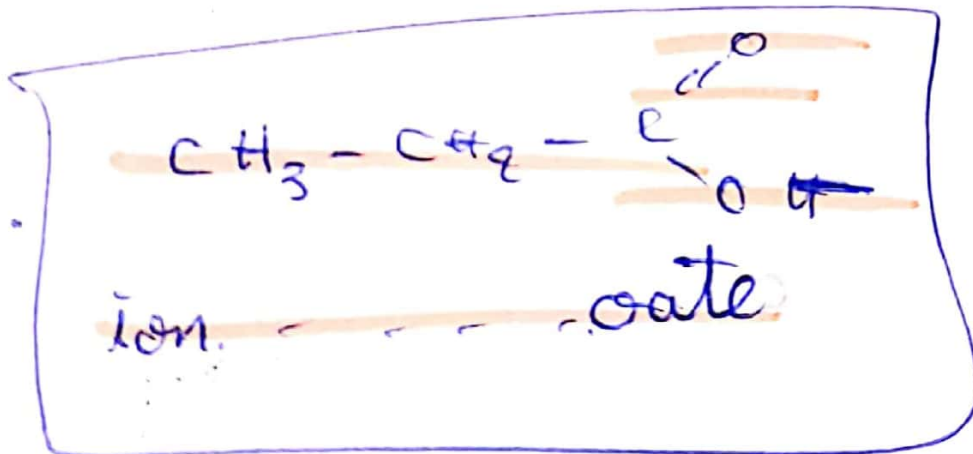 O
//
CH3 - CH2 - C
\
O H
ion. - - - - . oate